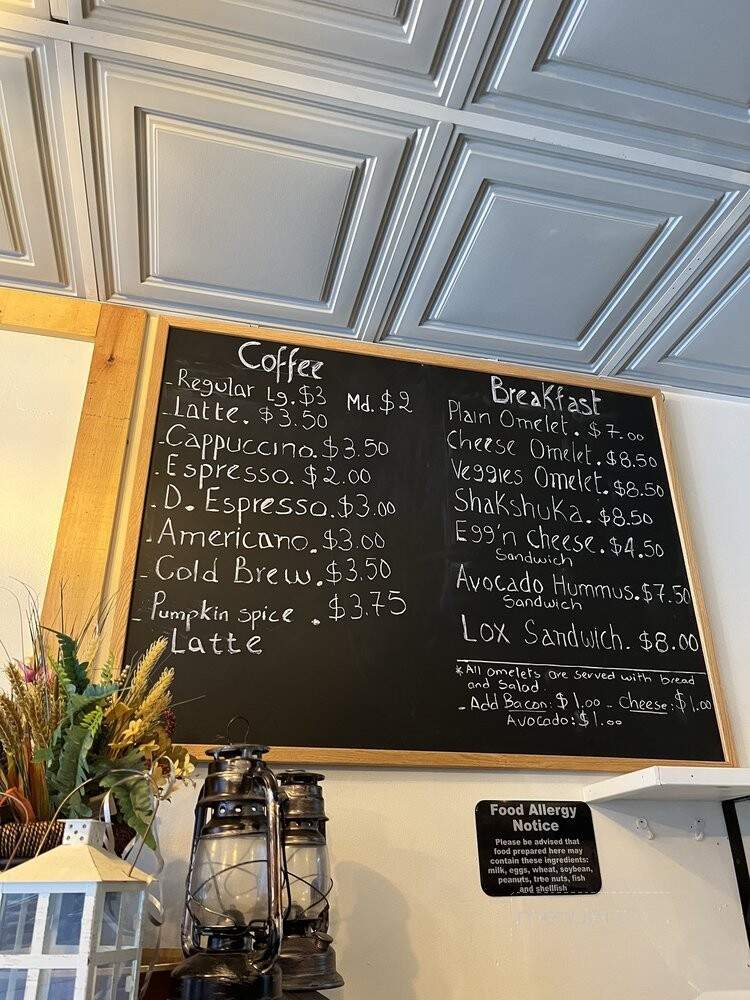 Coffee
- Regular Lg. $3 Md. $2
- Latte. $3.50
- Cappuccino. $3.50
. Espresso. $2.00
. D. Espresso. $3.00
. Americano. $3.00
- Cold Brew. $3.50
- Pumpkin spice . $3.75
Latte
Breakfast
Plain Omelet. $7.00
Cheese Omelet. $8.50
Veggies Omelet. $8.50
Shakshuka. $8.50
Egg'n Cheese. $4.50
Sandwich
Avocado Hummus. $7.50
Sandwich
Lox Sandwich. $8.00
*All omelets are served with bread
and Salad.
- Add Bacon: $1.00 - Cheese: $1.00
Avocado: $1.00
Food Allergy
Notice
Please be advised that
food prepared here may
contain these ingredients:
milk, eggs, wheat, soybean,
peanuts, tree nuts, fish
and shellfish